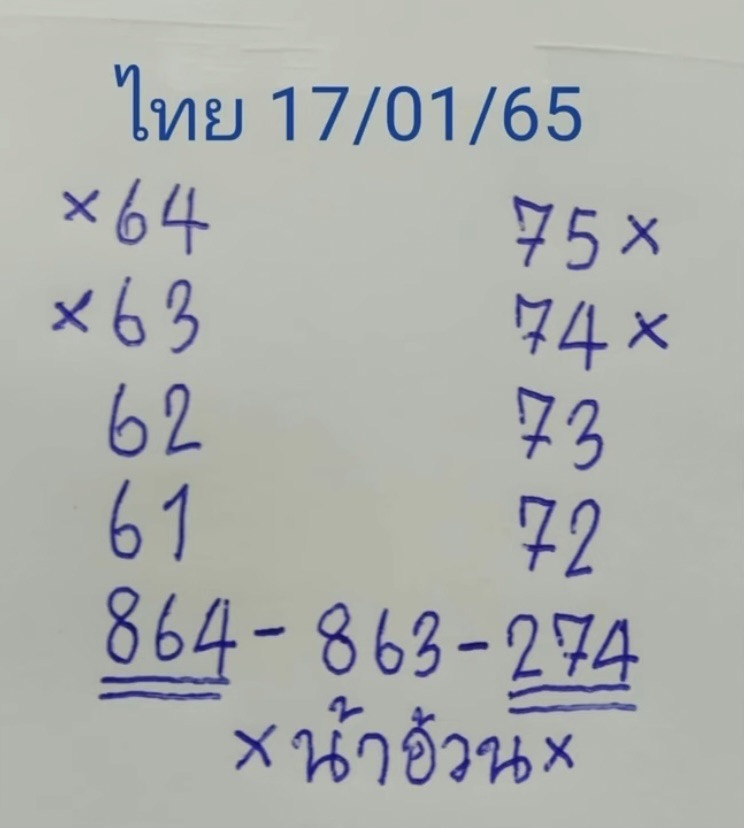 ไทย 17/01/65
×64 75×
×63 74×
62 73
61 72
864 - 863 - 274
×น้าอ้วน×